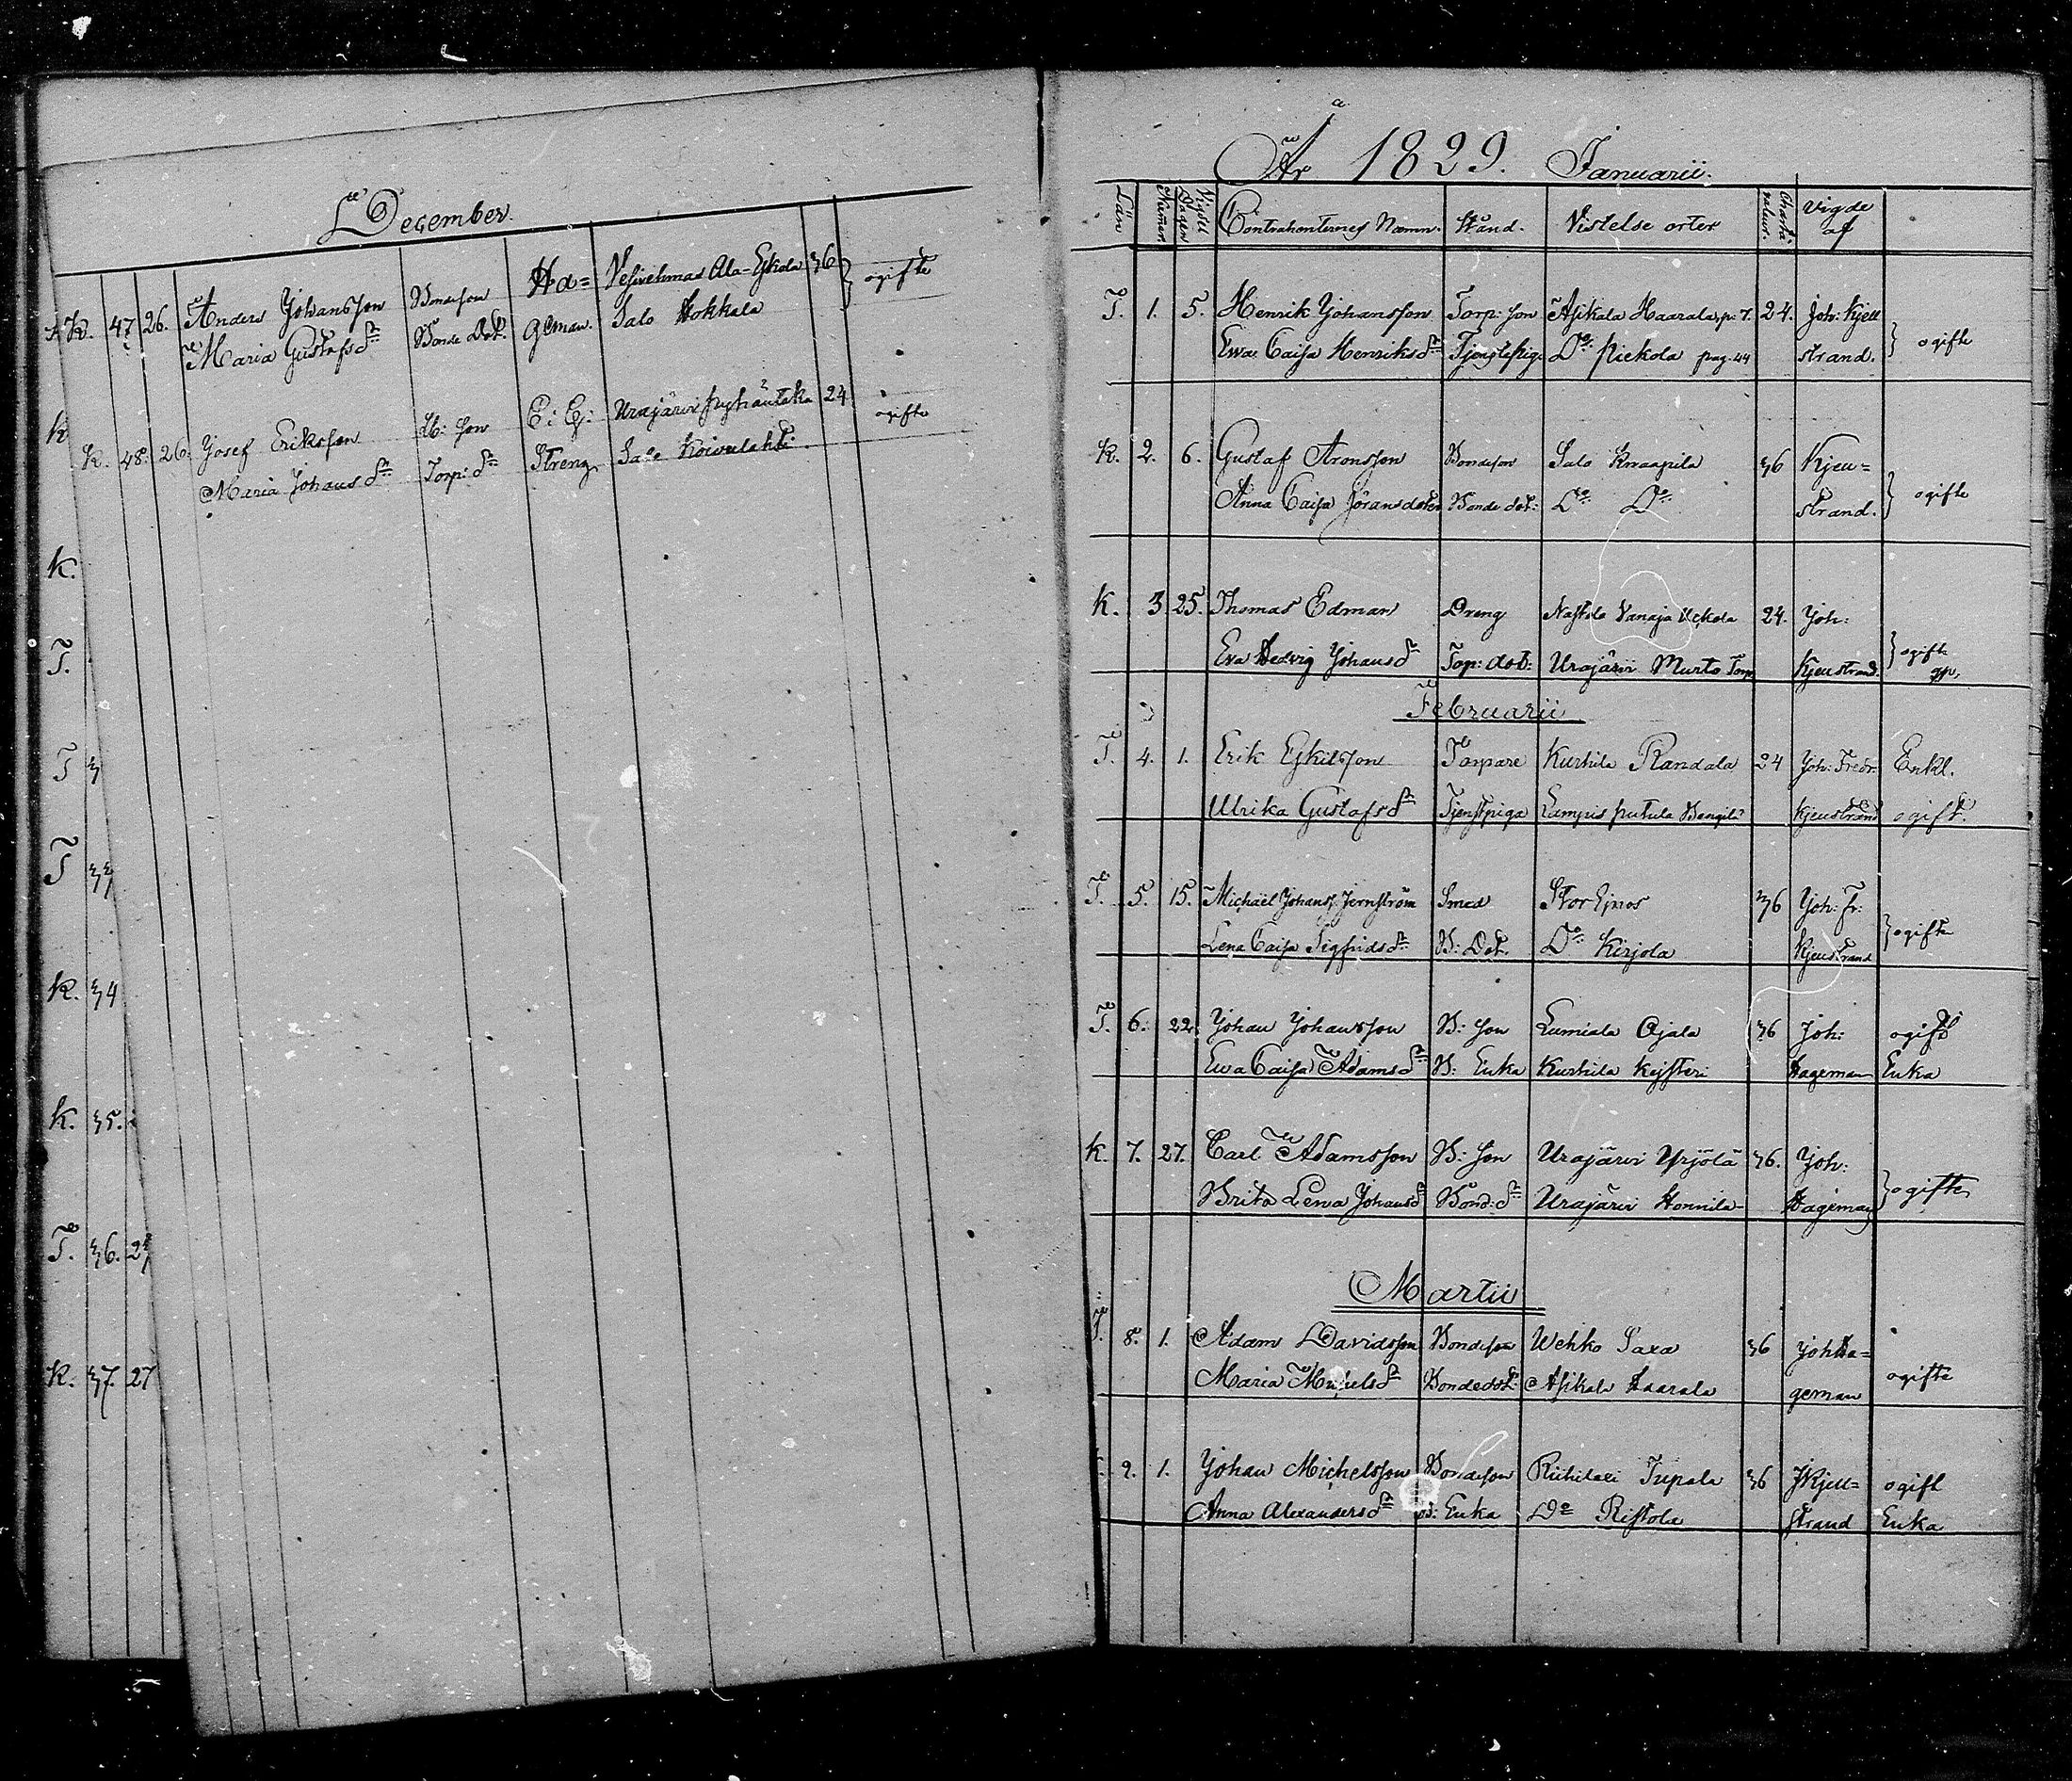 December
K. 47 26. Anders Johansson Bondeson Ha= Vesivehmas Ala-Eskola 36 ogifte
Maria Gustafsdr Bonde Dot. geman. Salo Hokkala
K. 48. 26. Josef Eriksson Sb: son E: G: Urajärvi 24 ogifte
Maria Johansdr Torp: dr Streng Salo Koivulahti
K
K.
T.
T 3
T 33
K. 34
K. 35.
T. 36. 2
K. 37. 27
År 1829. Januarii.
Län Numer Vigsel Dagen Contrahenternes Namn. Stånd. Vistelse orter Charta valeur. Vigde af
T. 1. 5. Henrik Johansson Torp: son Asikala Haarala p. 7. 24. Joh: Kjell
Ewa Caisa Henriksdr Tjenstepig. Do: Piekola pag. 44 strand. ogifte
K. 2. 6. Gustaf Aronsson Bondeson Salo Knaapila 36 Kjell=
Anna Caisa Jöransdoter Bonde dot: Do: Do: strand. ogifte
K. 3 25. Thomas Edman Dreng Nastola Vanaja Uckola 24. Joh:
Eva Hedvig Johansdr Torp: dot: Urajärvi Murto Torp Kjellstrand. ogifte
Februarii
T. 4. 1. Erik Eskilsson Torpare Kurhila Randala 24 Joh: Fredr. Enkl.
Ulrika Gustafsdr Tjenstpiga Lampis Putula Kjellstrand ogift.
T. 5. 15. Michael Johanss. Jernström Smed Stor Ejnos 36 Joh: Fr:
Lena Caisa Sigfridsdr B: Dot. Do: Kirjola Kjellstrand ogifte
T. 6. 22. Johan Johansson B: son Lumiala Ojala 36 Joh: ogift
Ewa Caisa Adamsdr B: Enka Kurhila Keisteri Hageman Enka
K. 7. 27. Carl Adamsson B: son Urajärvi Yrjölä 36. Joh:
Brita Lena Johansdr Bond: dr Urajärvi Honnila Hageman ogifte
Martii
T. 8. 1. Adam Davidsson Bondeson Wehko Saxa 36 Joh Ha=
Maria Michelsdr Bondedot: Asikala Haarala geman ogifte
9. 1. Johan Michelsson Bondeson Riihilax Tupala 36 J Kjell= ogift
Anna Alexandersdr B: Enka Do Ristola strand Enka